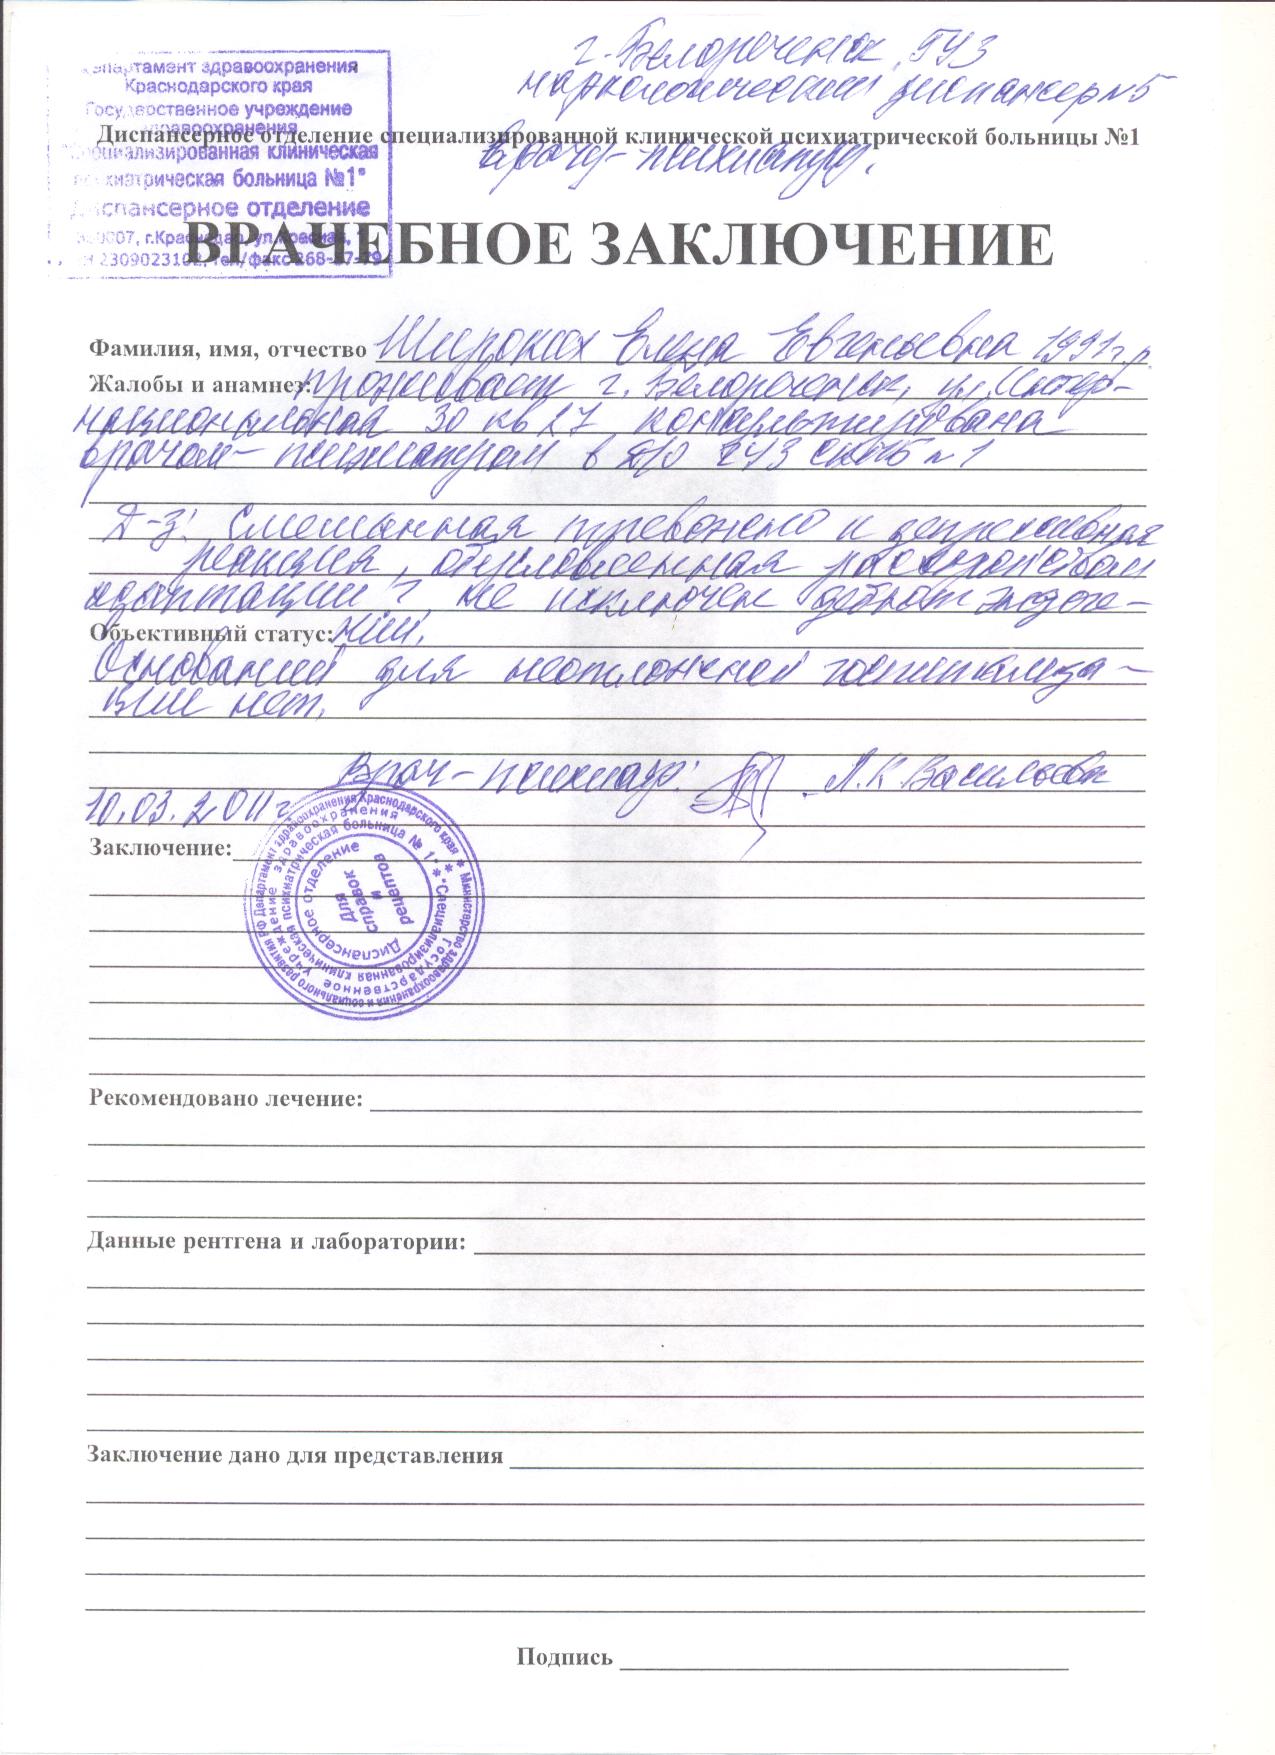 г. Белореченск, ГУЗ
наркологический диспансер №5
Департамент здравоохранения
Краснодарского края
Государственное учреждение
здравоохранения
Диспансерное отделение специализированной клинической психиатрической больницы №1
"Специализированная клиническая
психиатрическая больница №1"
врачу-психиатру.
Диспансерное отделение
г.Краснодар, ул.Красная, 1
2309023102, тел/факс 268-
ВРАЧЕБНОЕ ЗАКЛЮЧЕНИЕ
Фамилия, имя, отчество Широких Елена Евгеньевна 1991 г.р.
Жалобы и анамнез: проживает г. Белореченск, ул. Интер-
национальная 30 кв 27 консультирована
врачом-психиатром в д/о ГУЗ СКПБ №1
Д-з: Смешанная тревожно и депрессивная
реакция, обусловленная расстройством
адаптации? не исключен дебют эндоге-
Объективный статус: нии.
Оснований для неотложной госпитализа-
ции нет.
Врач-психиатр: Л.К. Васильева
10.03.2011 г.
Заключение:
Министерство здравоохранения и социального развития РФ Департамент здравоохранения Краснодарского края
Государственное учреждение здравоохранения
"Специализированная клиническая психиатрическая больница № 1"
Диспансерное отделение
Для
справок
и
рецептов
Рекомендовано лечение:
Данные рентгена и лаборатории:
Заключение дано для представления
Подпись